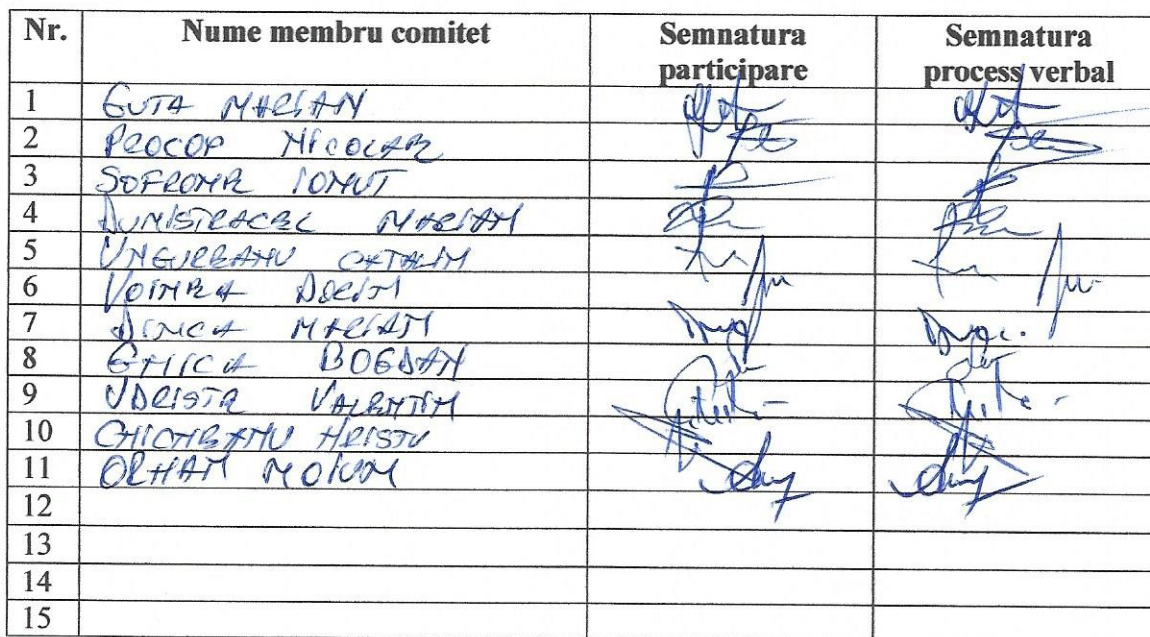 Nr. Nume membru comitet Semnatura participare Semnatura process verbal
1 GUTA MARIAN
2 PROCOP NICOLAE
3 SOFRONE IONUT
4 DUMISTRACEL MARIAN
5 UNGUREANU CATALIN
6 VOINEA DORIN
7 DINCA MARIAN
8 GHICA BOGDAN
9 UDRISTE VALENTIN
10 GHIGHEANU HRISTU
11 ORHAN
12
13
14
15